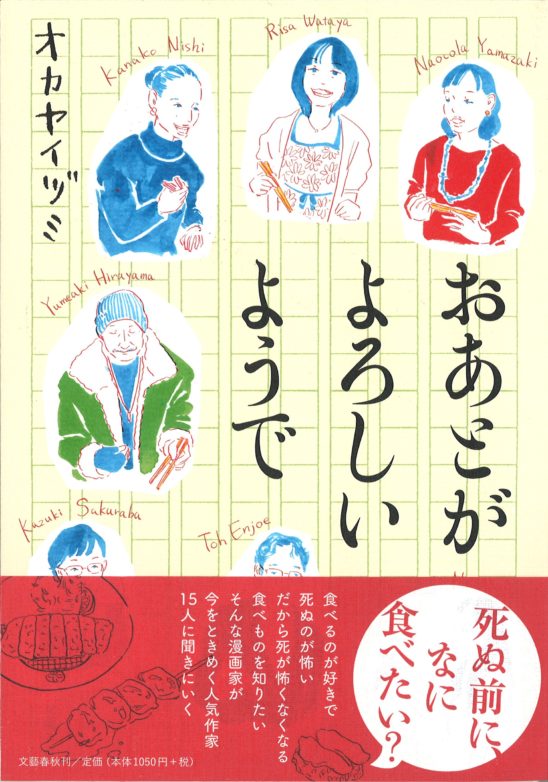 オカヤイヅミ
Kanako Nishi
Risa Wataya
Naocola Yamazaki
おあとが
よろしい
ようで
Yumeaki Hirayama
Kazuki Sakuraba
Toh Enjoe
死ぬ前に、
なに
食べたい?
食べるのが好きで
死ぬのが怖い
だから死が怖くなくなる
食べものを知りたい
そんな漫画家が
今をときめく人気作家
15人に聞きにいく
文藝春秋刊／定価（本体1050円＋税）